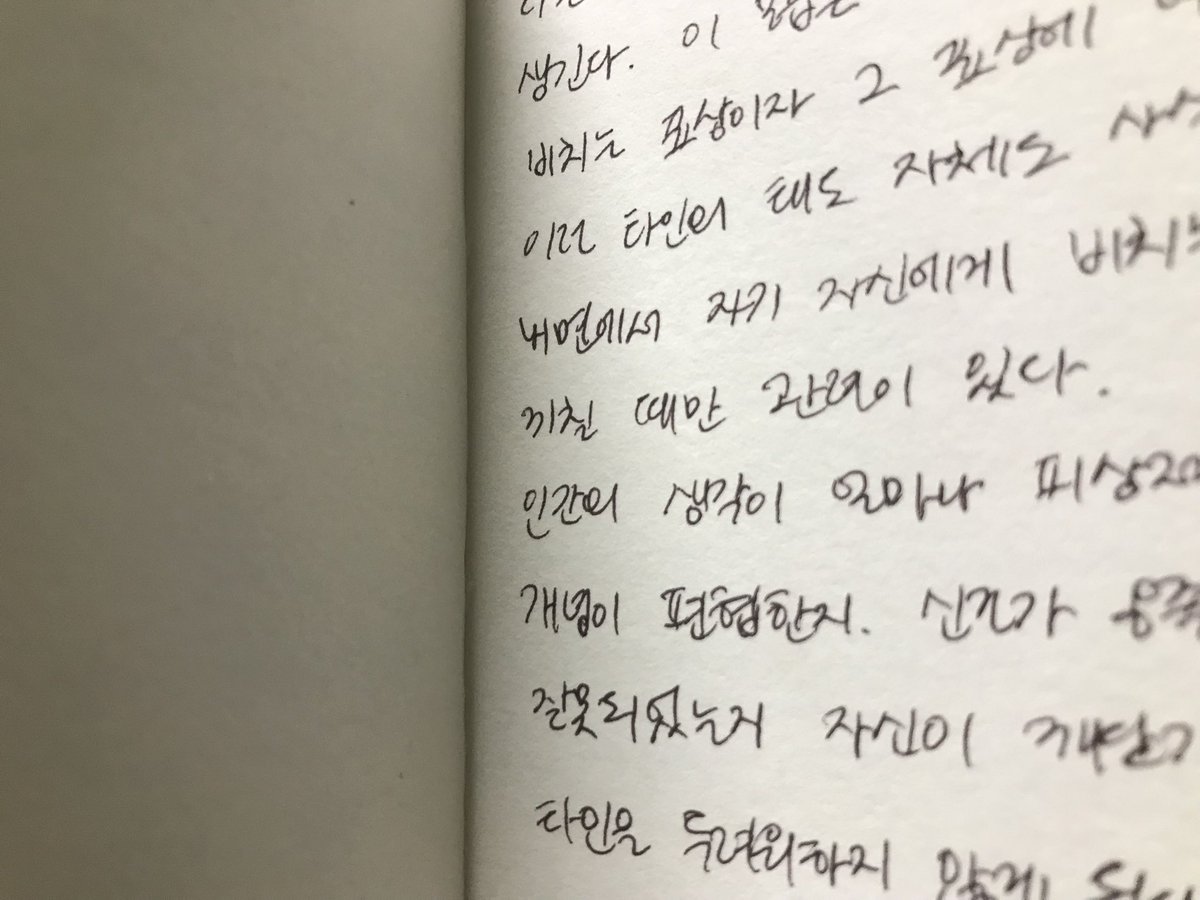 생긴다. 이 모습은
비치는 표상이자 그 표상에
이며 타인의 태도 자체도
내면에서 자기 자신에게 비치는
끼칠 때만 관련이 있다.
인간의 생각이 얼마나 피상적
개념이 편협한지. 신조가
잘못되었는지 자신이 깨닫게
타인을 두려워하지 않게 된다